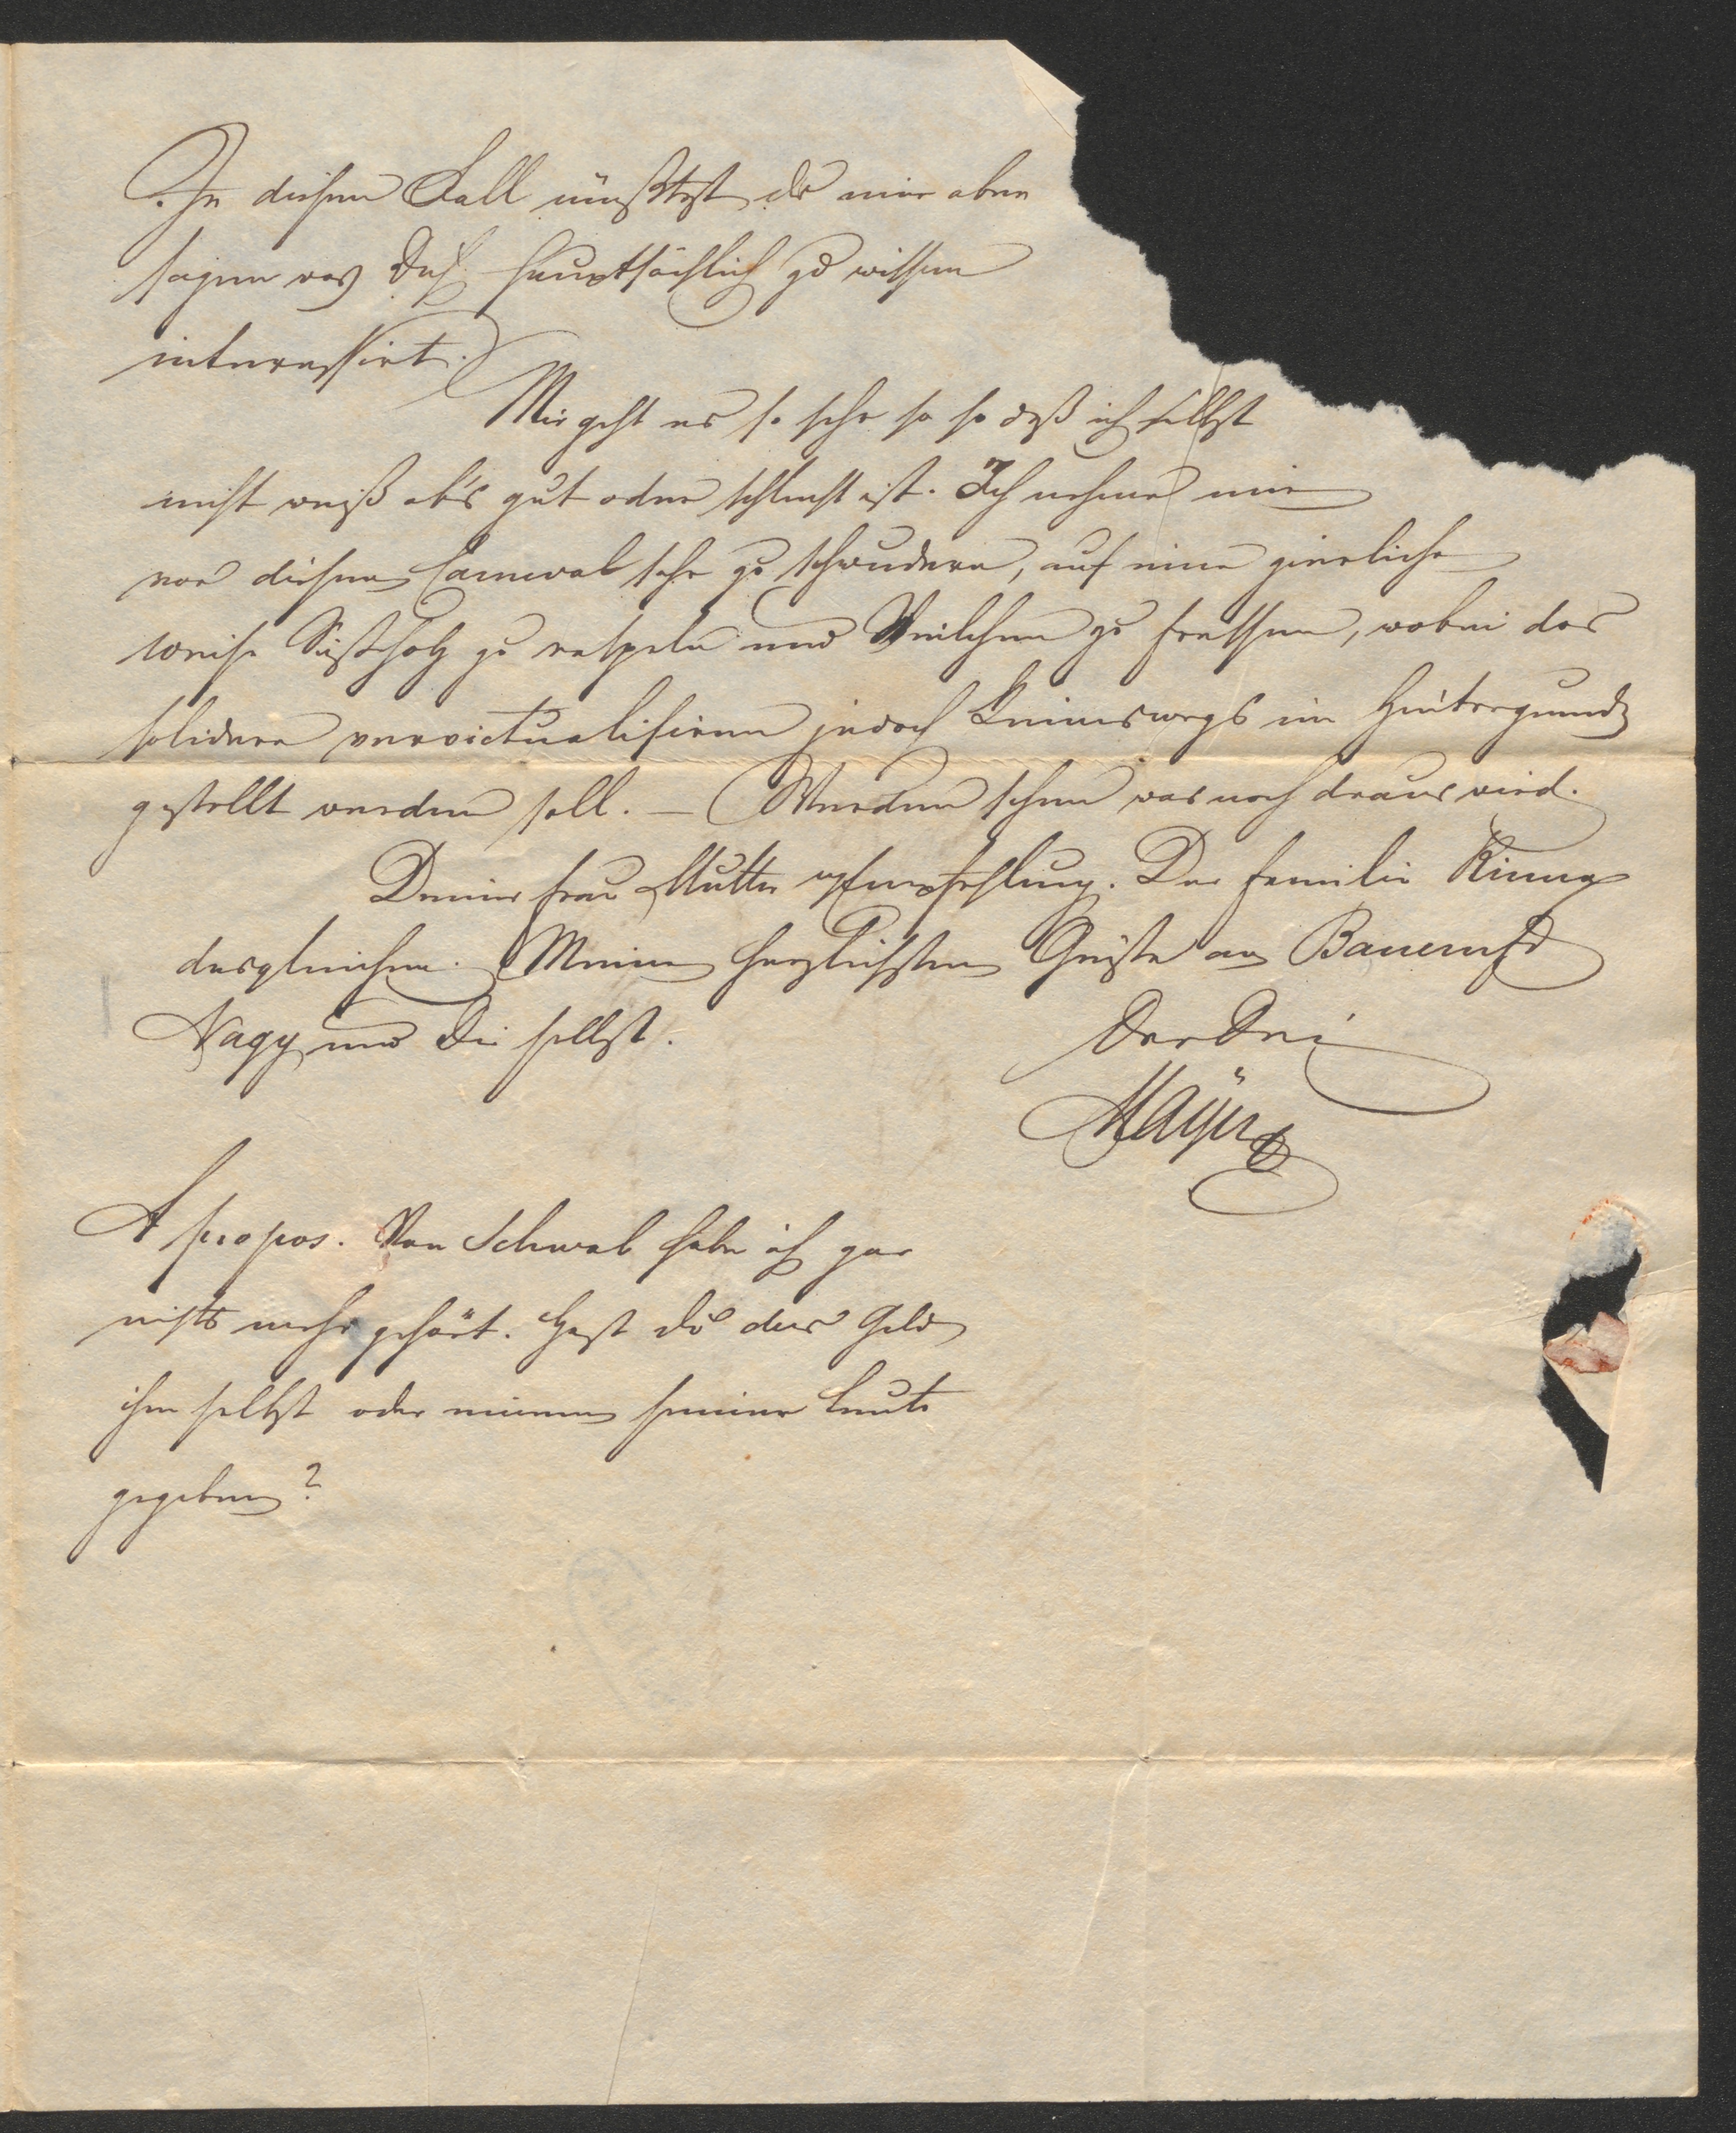 In diesem Fall müßtest du mir aber
sagen was Dich hauptsächlich zu wissen
interessirt.
Mir geht es so sehr so so daß ich selbst
nicht weiß ob's gut oder schlecht ist. Ich nehme mir
vor diesen Carneval sehr zu schwudern, auf eine zierliche
Weise Süßholz zu raspeln und Veilchen zu fressen, wobei das
solidere vervictualisiren jedoch keineswegs im Hintergrund
gestellt werden soll. — Werden sehen was noch draus wird.
Deiner Frau Mutter Empfehlung. Der Familie
desgleichen. Meine herzlichsten Grüße an Bauernfd
Nagy und Dir selbst.
Der Dei
Mayer
A propos. Von Schwab habe ich gar
nichts mehr gehört. Hast du das Geld
ihm selbst oder einem seiner Leute
gegeben?